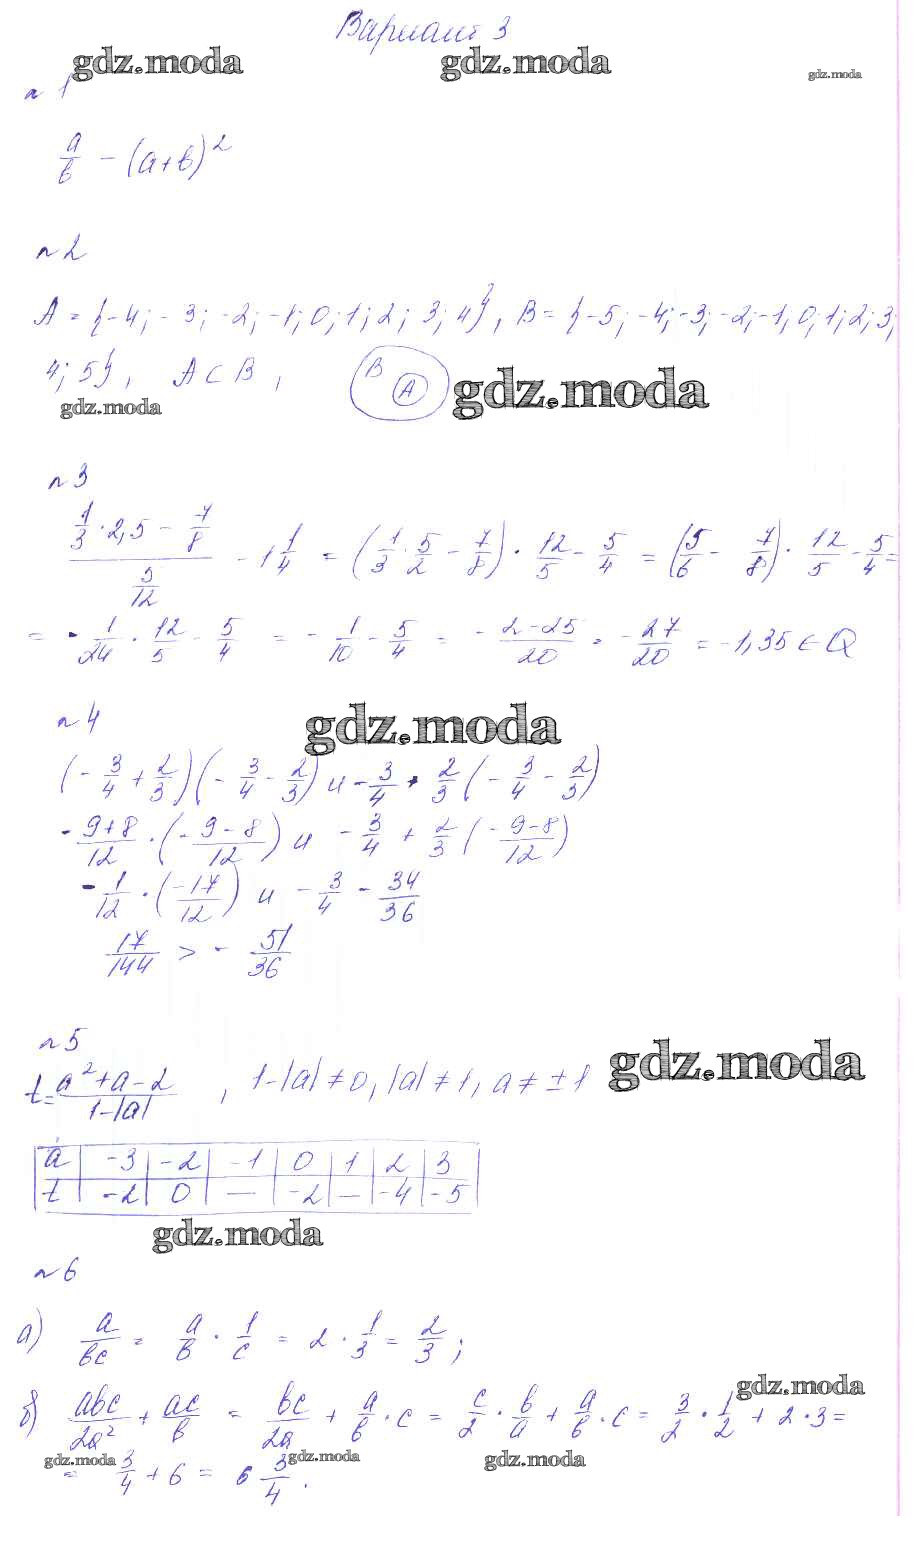 Вариант 3
gdz.moda gdz.moda gdz.moda
n 1
a/b - (a+b)^2
n 2
A = {-4; -3; -2; -1; 0; 1; 2; 3; 4}, B = {-5; -4; -3; -2; -1, 0, 1; 2; 3;
4; 5}, A ⊂ B, B A gdz.moda
gdz.moda
n 3
(1/3 · 2,5 - 7/8)/(5/12) - 1 1/4 = (1/3 · 5/2 - 7/8) · 12/5 - 5/4 = (5/6 - 7/8) · 12/5 - 5/4 =
= -1/24 · 12/5 - 5/4 = -1/10 - 5/4 = -(2-25)/20 = -27/20 = -1,35 ∈ Q
n 4 gdz.moda
(-3/4 + 2/3)(-3/4 - 2/3) и -3/4 + 2/3 (-3/4 - 2/3)
(-9+8)/12 · ((-9-8)/12) и -3/4 + 2/3 ((-9-8)/12)
-1/12 · (-17/12) и -3/4 - 34/36
17/144 > -51/36
n 5 gdz.moda
t = (a^2+a-2)/(1-|a|), 1-|a| ≠ 0, |a| ≠ 1, a ≠ ±1
a -3 -2 -1 0 1 2 3
t -2 0 — -2 — -4 -5
gdz.moda
n 6
а) a/bc = a/b · 1/c = 2 · 1/3 = 2/3;
gdz.moda
б) abc/2a^2 + ac/b = bc/2a + a/b · c = c/2 · b/a + a/b · c = 3/2 · 1/2 + 2·3 =
gdz.moda gdz.moda gdz.moda
= 3/4 + 6 = 6 3/4.